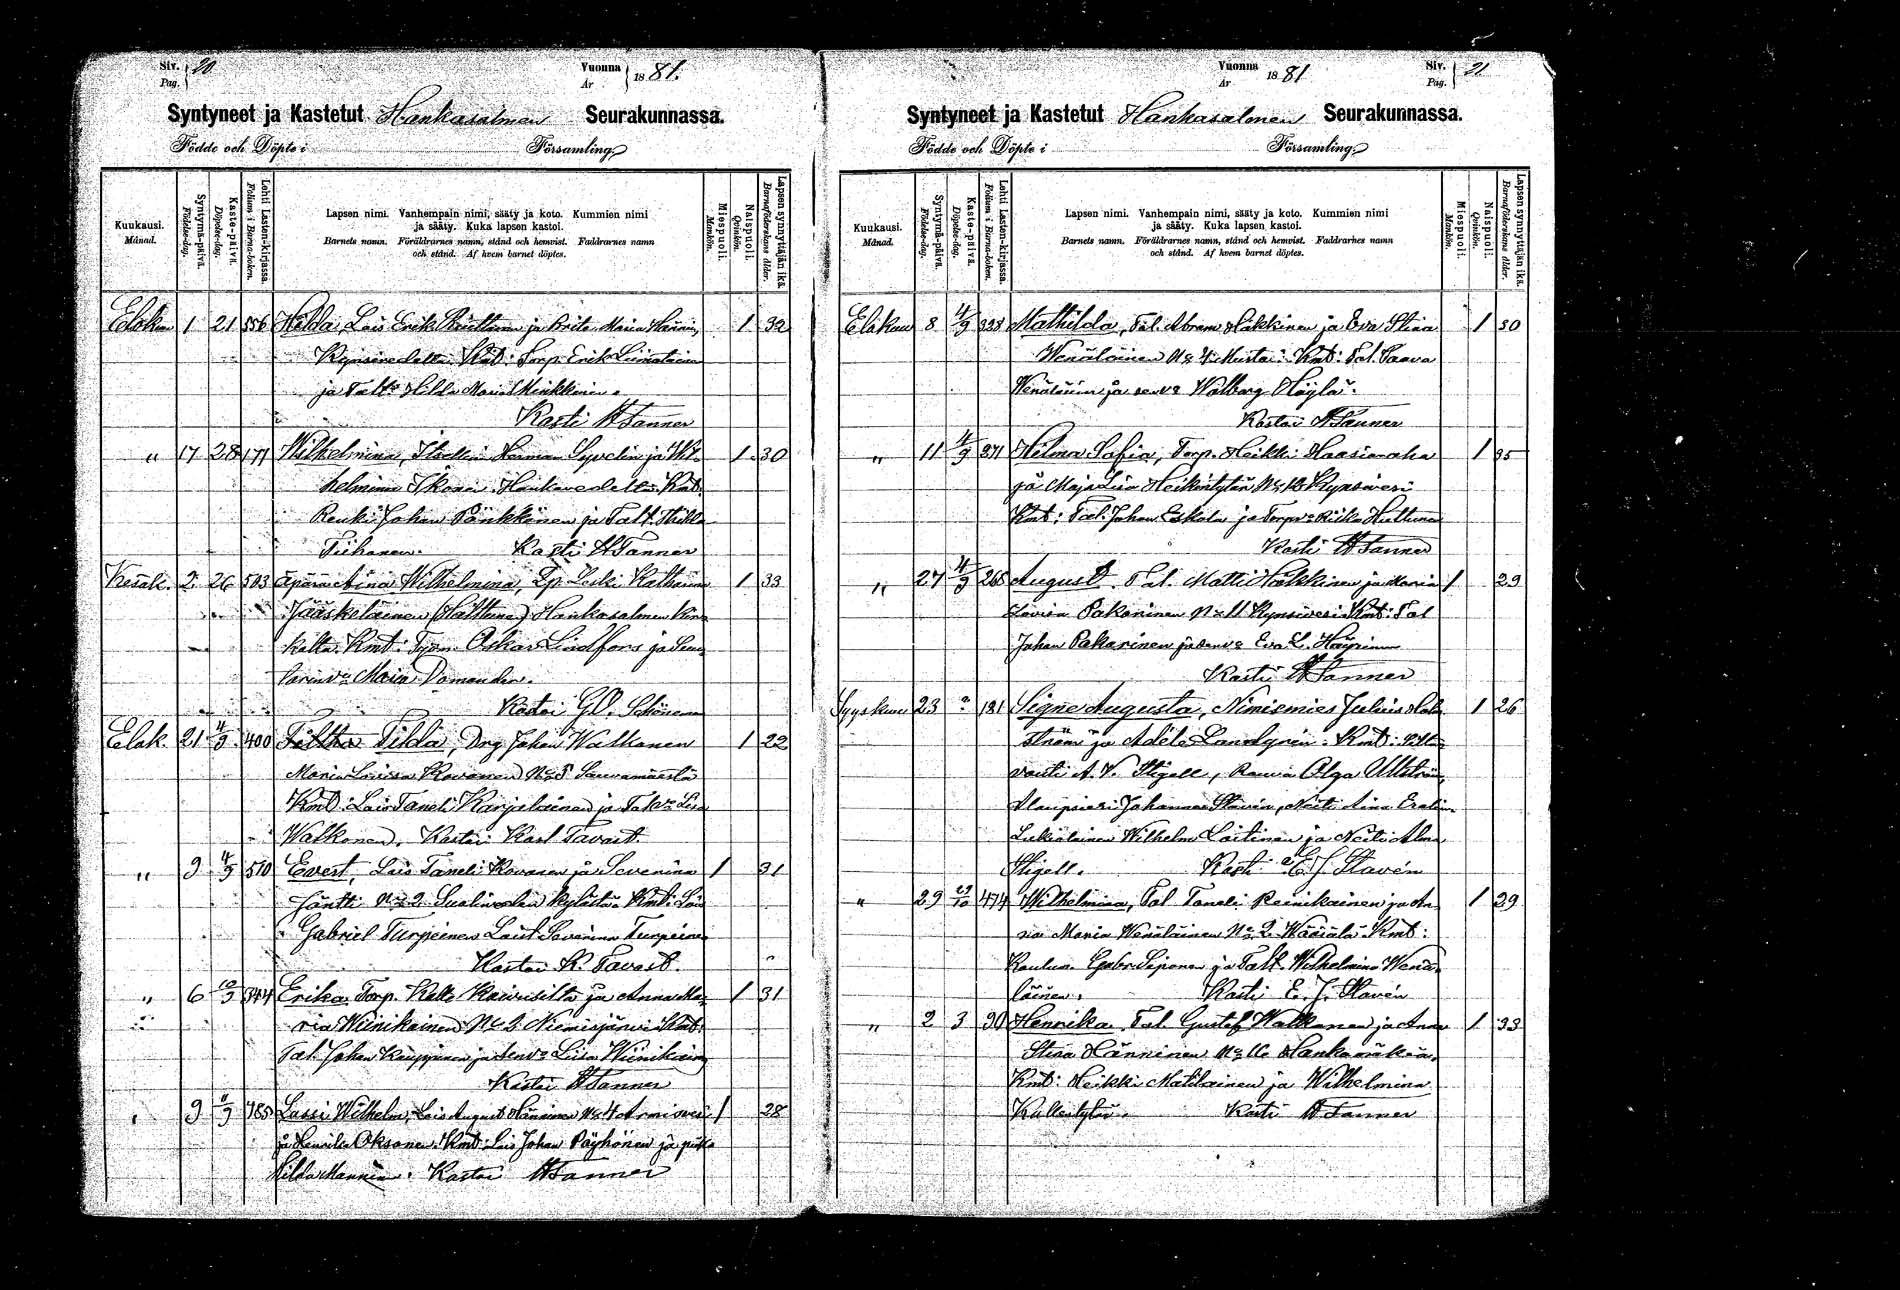 Siv. 20
Pag.
Vuonna 1881.
År
Syntyneet ja Kastetut Hankasalmen Seurakunnassa.
Födde och Döpte i Församling
Kuukausi.
Månad.
Syntymä-päivä.
Födelse-dag.
Kaste-päivä.
Döpelse-dag.
Lehti Lasten-kirjassa.
Folium i Barna-boken.
Lapsen nimi. Vanhempain nimi, sääty ja koto. Kummien nimi
ja sääty. Kuka lapsen kastoi.
Barnets namn. Föräldrarnes namn, stånd och hemvist. Faddrarnes namn
och stånd. Af hvem barnet döptes.
Miespuoli.
Mankön.
Naispuoli.
Qvinkön.
Lapsen synnyttäjän ikä.
Barnaföderskans ålder.
Elokuu 1 21 556 Hilda, Lois Erik Ruuttunen ja Brita Maria 1 32
Kynsivedeltä Kmt: Torp. Erik Liimatainen
ja Talt. Hilda Maria Minkkinen.
Kasti H Tanner
" 17 28 171 Wilhelmina, Herman Syvelin ja Wil- 1 30
helmina Ikonen Hankavedeltä Kmt:
Renki Johan Pänkkönen ja Talt.
Tiihonen. Kasti H Tanner
Kesäk. 2 26 503 Äpärä Aina Wilhelmina, Leski Katharina 1 33
Jääskeläinen (Hälttunen) Hankasalmen kir-
kolta Kmt: Oskar Lindfors ja
Maria Domander.
Kastoi G.O. Schöneman
Elok. 21 4/9 400 Fältha Tilda, Drg Johan Walkonen 1 22
Maria Lovisa Kovanen No 5 Sauvamäestä
Kmt: Lois Taneli Karjalainen ja Talv. Lisa
Walkonen. Kastoi Karl Tavast.
" 9 4/9 510 Evert, Lois Taneli Kovanen ja Severina 1 31
Jäntti No 2 kylästä Kmt: Lois
Gabriel Turpeinen Loist Saverina Turpeinen
Kastoi K. Tavast.
" 6 10/9 344 Erika Torp. Kalle Kaurisilta ja Anna Ma- 1 31
ria Wiinikainen No 2 Niemisjärvi Kmt:
Tal. Johan Kauppinen ja senv. Liisa Wiinikainen
Kastoi H Tanner
" 9 11/9 Lassi Wilhelm, Lois August Hänninen No 4 Armisvesi 1 28
ja Henrika Oksanen. Kmt: Lois Johan Pöyhönen ja piika
Hilda Manninen. Kastoi H Tanner
Vuonna 1881
År
Siv. 21
Pag.
Syntyneet ja Kastetut Hankasalmen Seurakunnassa.
Födde och Döpte i Församling
Kuukausi.
Månad.
Syntymä-päivä.
Födelse-dag.
Kaste-päivä.
Döpelse-dag.
Lehti Lasten-kirjassa.
Folium i Barna-boken.
Lapsen nimi. Vanhempain nimi, sääty ja koto. Kummien nimi
ja sääty. Kuka lapsen kastoi.
Barnets namn. Föräldrarnes namn, stånd och hemvist. Faddrarnes namn
och stånd. Af hvem barnet döptes.
Miespuoli.
Mankön.
Naispuoli.
Qvinkön.
Lapsen synnyttäjän ikä.
Barnaföderskans ålder.
Elokuu 8 4/9 328 Mathilda, Tal. Abram Häkkinen ja Eva Stina 1 30
Wenäläinen No 4 Kmt: Tal. Paavo
Wenäläinen ja senv. Walborg Höylä.
Kastoi H Tanner
" 11 4/9 371 Hilma Sofia, Torp. Heikki Haasianaho 1 35
ja Maja Lisa Heikintytär No 12 Kynsivesi
Kmt: Tal. Johan Eskola ja Torpv. Riika Huttunen
Kasti H Tanner
" 27 4/9 265 August. Tal. Matti Häkkinen ja Maria 1 29
Lovisa Pakarinen No 11 Kynsivesi Kmt: Tal
Johan Pakarinen ja senv. Eva L. Häyrinen
Kasti H Tanner
Syyskuu 23 ? 181 Signe Augusta, Nimismies Julius Holm- 1 26
ström ja Adéle Landgrén. Kmt:
vouti A. V. Stigell, Rouva Olga Ullström,
Johannes Stavén, Neiti Aina
Lukiolainen Wilhelm Laitinen ja Neiti Alma
Stigell. Kasti E. J. Stavén
" 29 29/10 474 Wilhelmina, Tal. Taneli Reinikainen ja An- 1 29
na Maria Wenäläinen No 2 Wääsälä Kmt:
Gabr. Siponen ja Talt. Wilhelmina Wenä-
läinen. Kasti E. J. Stavén
" 2 3 90 Henrika, Tal. Gustaf Walkonen ja Anna 1 33
Stina Hänninen No 16 Hankamäkeä.
Kmt: Heikki Matilainen ja Wilhelmina
Kallentytär. Kasti H Tanner